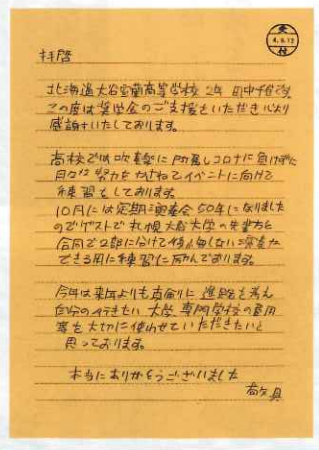 受
4.8.12
付
拝啓
北海道大谷室蘭高等学校 2年 田中千花です
この度は奨学金のご支援をいただき心より
感謝いたしております。
高校では吹奏楽に所属しコロナに負けずに
日々 努力をかさねてイベントに向けて
練習をしております。
10月には定期演奏会50年になりました
のでゲストで札幌大谷大学の先輩方と
合同で2部に分けて 悔いのない演奏が
できる用に練習に励んでおります。
今年は来年よりも 進路を考え
自分の行きたい大学、専門学校の費用
等を大切に使わせていただきたいと
思っております。
本当にありがとうございました
敬具